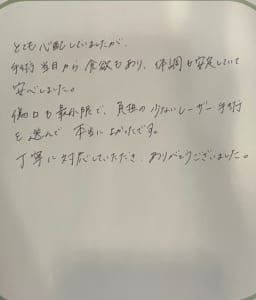 とても心配していましたが、
手術当日から食欲もあり、体調も安定していて
安心しました。
傷口も最小限で、負担の少ないレーザー手術
を選んで本当によかったです。
丁寧に対応していただき、ありがとうございました。